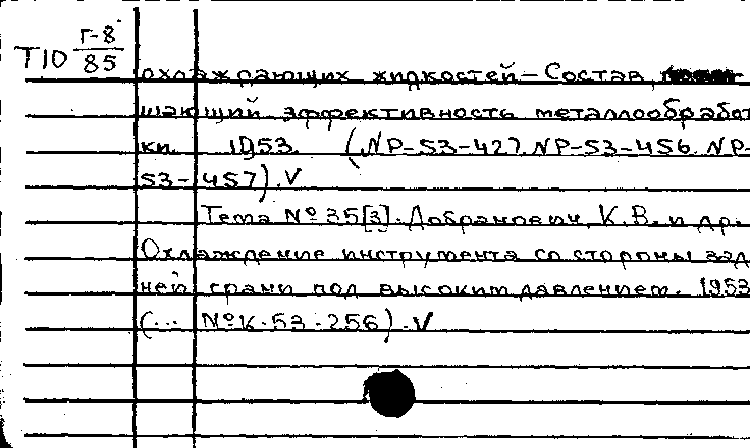 Т10 Г-8/85
охлаждающих жидкостей – Состав,
шающий эффективность металлообработ
ки. 1953. (NР-53-427. NР-53-456. NР-
53-457). V
Тема №35[3]. Добранович, К.В. и др.
Охлаждение инструмента со стороны зад
ней грани под высоким давлением. 1953
(... №К-53-256). V